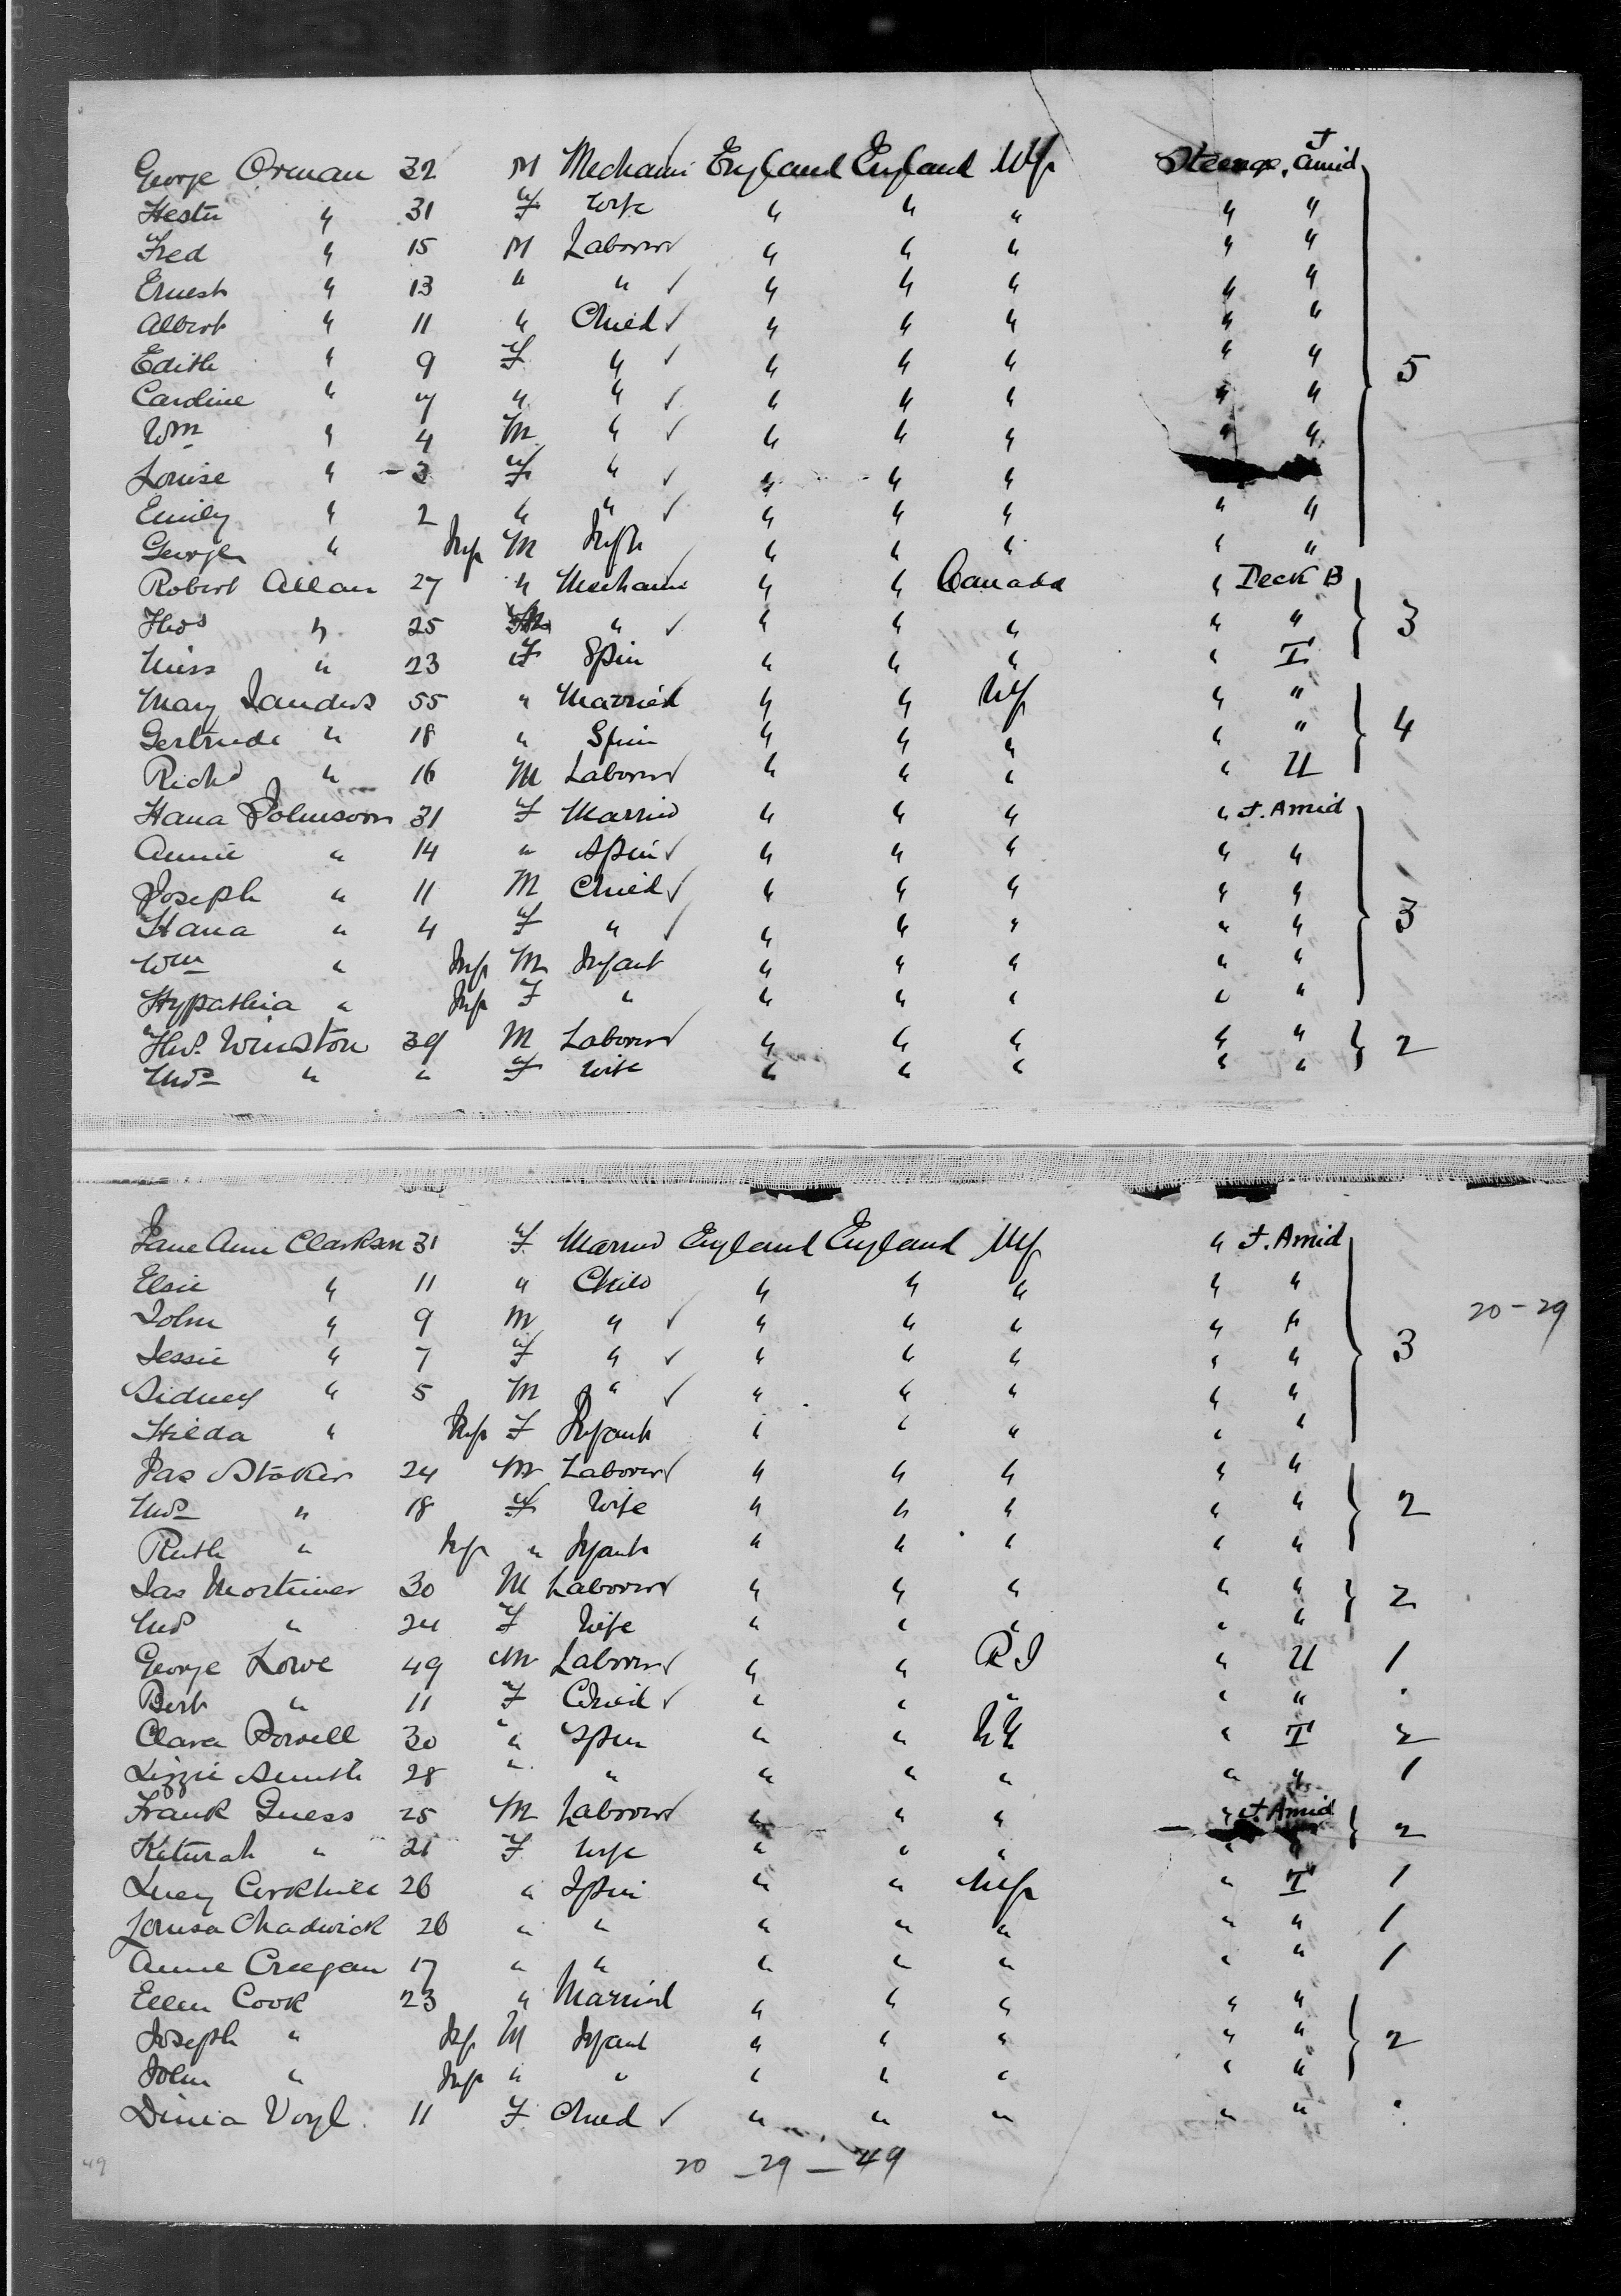 George Orman 32 M Mechani England England NY Steerage, J Amid
Hester " 31 F Wife " " " " "
Fred " 15 M Laborer " " " " "
Ernest " 13 " " " " " " "
Albert " 11 " Child " " " " " 5
Edith " 9 F " " " " " "
Caroline " 7 " " " " " " "
Wm " 4 M " " " " " "
Louise " 3 F " " " " "
Emily " 2 " " " " " " "
George " Inf M Inft " " " " "
Robert Allan 27 " Mechanic " " Canada " Deck B
Thos " 25 M " " " " " " 3
Miss " 23 F Spin " " " " I
Mary Sanders 55 " Married " " NY " "
Gertrude " 18 " Spin " " " " " 4
Richd " 16 M Laborer " " " " U
Hana Johnson 31 F Married " " " " J. Amid
Annie " 14 " Spin " " " " "
Joseph " 11 M Child " " " " "
Hana " 4 F " " " " " " 3
Wm " Inf M Infant " " " " "
Hypathia " Inf F " " " " " "
Thos. Winston 39 M Laborer " " " " " 2
Mrs " " F Wife " " " " "
Jane Ann Clarkson 31 F Married England England NY " J. Amid
Elsie " 11 " Child " " " " "
John " 9 M " " " " " " 20-29
Jessie " 7 F " " " " " " 3
Sidney " 5 M " " " " " "
Hilda " Inf F Infant " " " " "
Jas Stoker 24 M Laborer " " " " "
Mrs " 18 F Wife " " " " " 2
Ruth " Inf " Infant " " " " "
Jas Mortimer 30 M Laborer " " " " " 2
Mrs " 24 F Wife " " " " "
George Lowe 49 M Laborer " " R I " U 1
Bert " 11 F Child " " " " "
Clara Powell 30 " Spin " " " I 2
Lizzie Smith 28 " " " " " " " 1
Frank Guess 25 M Laborer " " " " J. Amid 2
Keturah " 21 F Wife " " " " "
Lucy Corkhill 26 " Spin " " NY " I 1
Louisa Chadwick 26 " " " " " " " 1
Anne Creegan 17 " " " " " " " 1
Ellen Cook 23 " Married " " " " "
Joseph " Inf M Infant " " " " " 2
John " Inf " " " " " " "
Dinia Voyl 11 F Child " " " " "
20 - 29 - 49
49